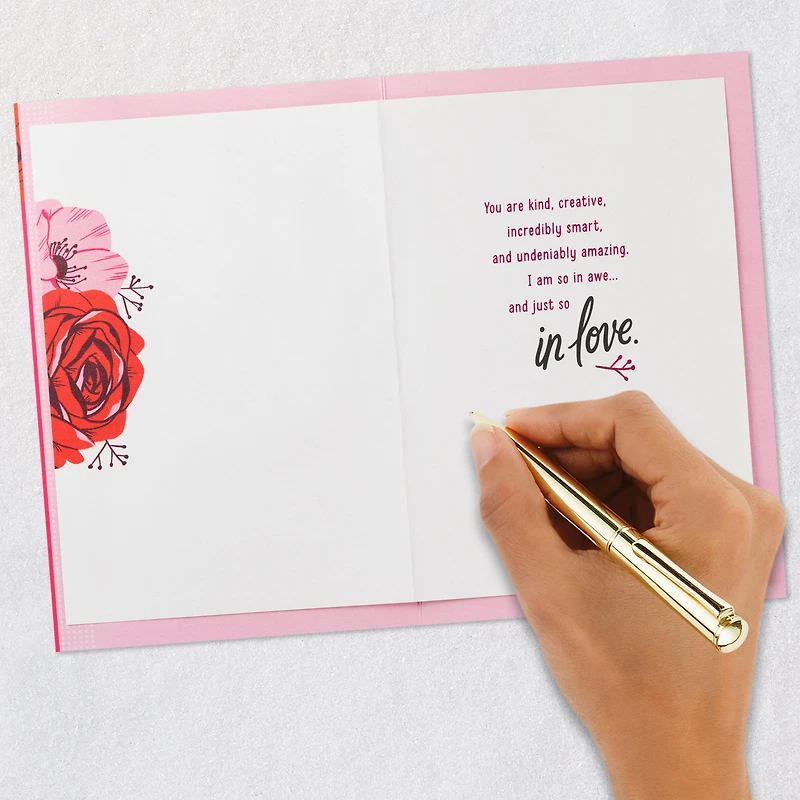 You are kind, creative,
incredibly smart,
and undeniably amazing.
I am so in awe...
and just so
in love.